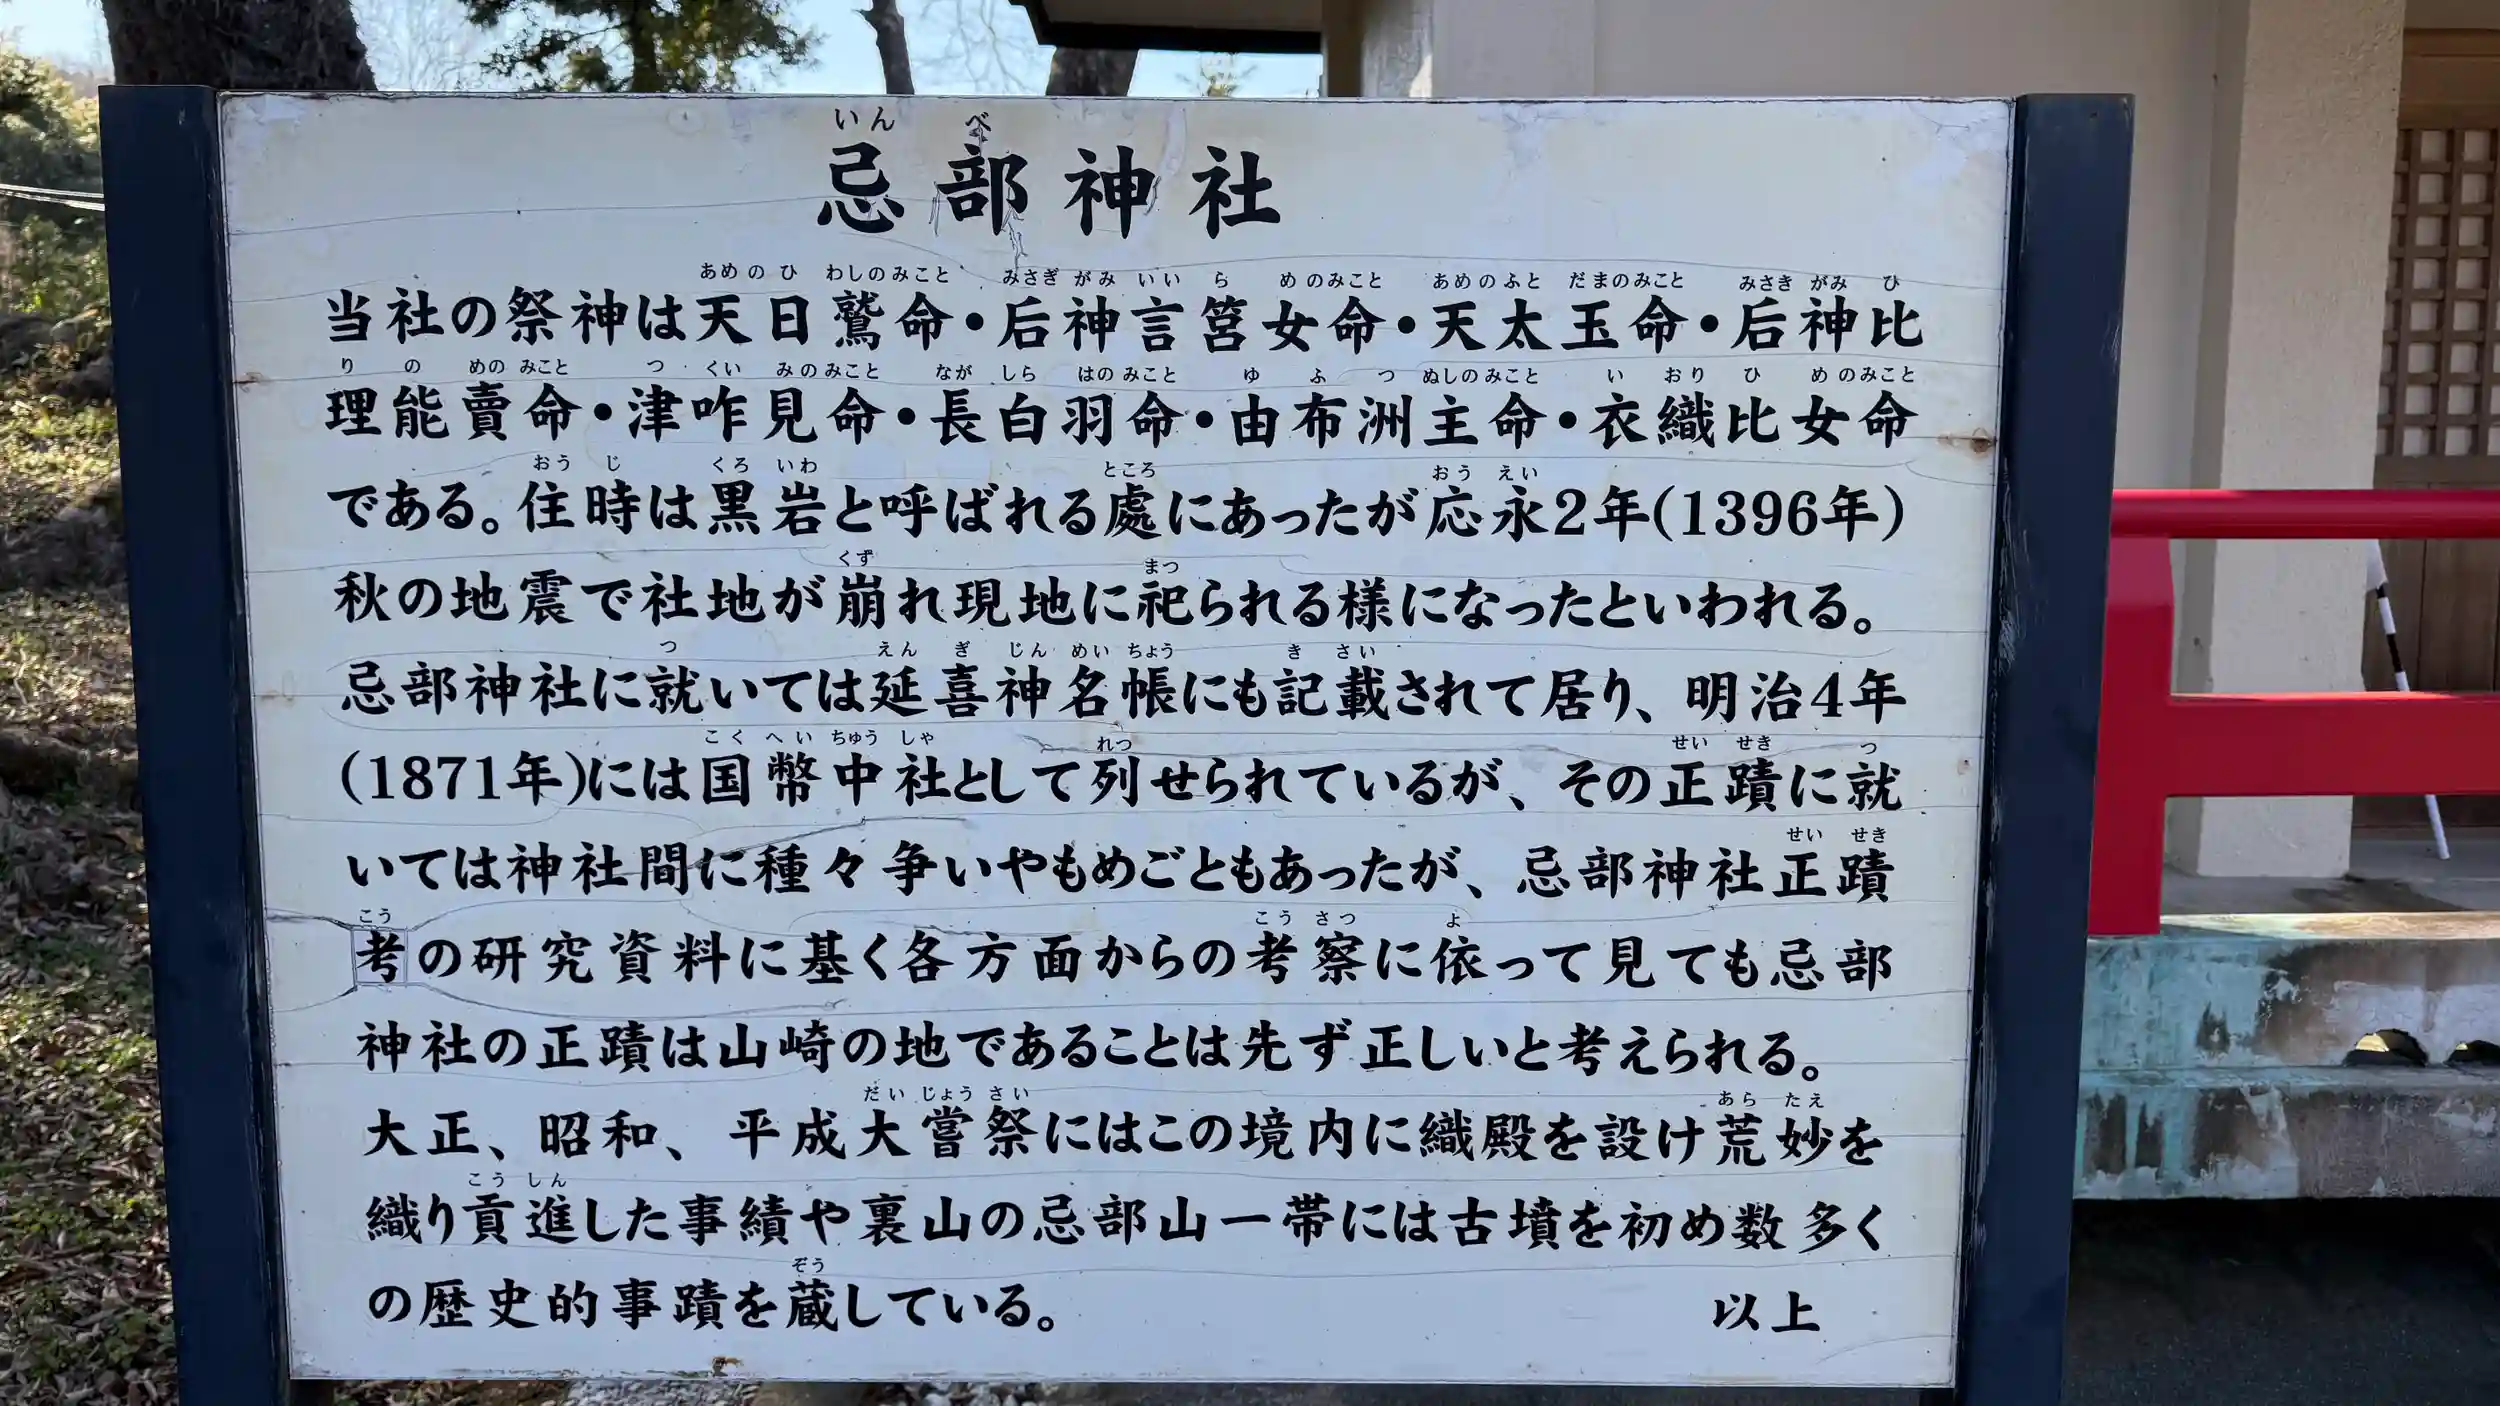 いんべ
忌部神社
あめのひわしのみこと みさぎがみいいらめのみこと あめのふとだまのみこと みさきがみひ
当社の祭神は天日鷲命・后神言筥女命・天太玉命・后神比
りのめのみこと つくいみのみこと ながしらはのみこと ゆふつぬしのみこと いおりひめのみこと
理能賣命・津咋見命・長白羽命・由布洲主命・衣織比女命
おうじ くろいわ ところ おうえい
である。住時は黒岩と呼ばれる處にあったが応永2年(1396年)
くず まつ
秋の地震で社地が崩れ現地に祀られる様になったといわれる。
つ えんぎじんめいちょう きさい
忌部神社に就いては延喜神名帳にも記載されて居り、明治4年
こくへいちゅうしゃ れつ せいせき つ
(1871年)には国幣中社として列せられているが、その正蹟に就
せいせき
いては神社間に種々争いやもめごともあったが、忌部神社正蹟
こう こうさつ よ
考の研究資料に基く各方面からの考察に依って見ても忌部
神社の正蹟は山崎の地であることは先ず正しいと考えられる。
だいじょうさい あらたえ
大正、昭和、平成大嘗祭にはこの境内に織殿を設け荒妙を
こうしん
織り貢進した事績や裏山の忌部山一帯には古墳を初め数多く
ぞう
の歴史的事蹟を蔵している。 以上